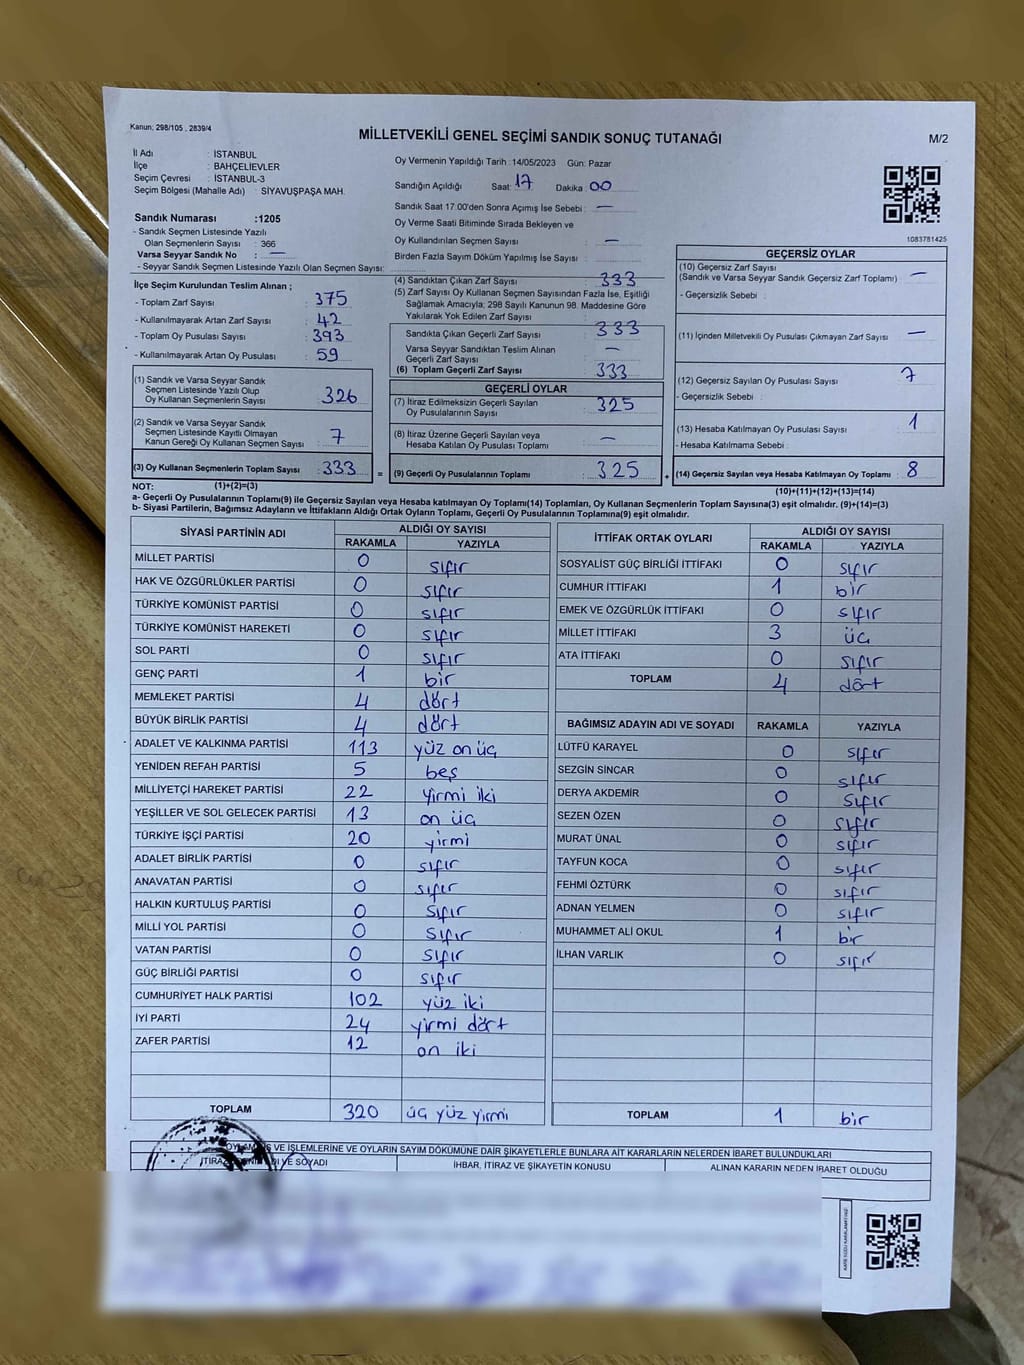 Kanun; 298/105 , 2839/4
MİLLETVEKİLİ GENEL SEÇİMİ SANDIK SONUÇ TUTANAĞI
M/2
İl Adı : İSTANBUL
İlçe : BAHÇELİEVLER
Seçim Çevresi : İSTANBUL-3
Seçim Bölgesi (Mahalle Adı) : SİYAVUŞPAŞA MAH.
Sandık Numarası :1205
- Sandık Seçmen Listesinde Yazılı
Olan Seçmenlerin Sayısı : 366
Varsa Seyyar Sandık No : —
- Seyyar Sandık Seçmen Listesinde Yazılı Olan Seçmen Sayısı:
İlçe Seçim Kurulundan Teslim Alınan ;
- Toplam Zarf Sayısı : 375
- Kullanılmayarak Artan Zarf Sayısı : 42
- Toplam Oy Pusulası Sayısı : 393
- Kullanılmayarak Artan Oy Pusulası : 59
(1) Sandık ve Varsa Seyyar Sandık
Seçmen Listesinde Yazılı Olup
Oy Kullanan Seçmenlerin Sayısı : 326
(2) Sandık ve Varsa Seyyar Sandık
Seçmen Listesinde Kayıtlı Olmayan
Kanun Gereği Oy Kullanan Seçmen Sayısı : 7
(3) Oy Kullanan Seçmenlerin Toplam Sayısı : 333 =
Oy Vermenin Yapıldığı Tarih :14/05/2023 Gün: Pazar
Sandığın Açıldığı Saat: 17 Dakika: 00
Sandık Saat 17:00'den Sonra Açımış İse Sebebi : —
Oy Verme Saati Bitiminde Sırada Bekleyen ve
Oy Kullandırılan Seçmen Sayısı : —
Birden Fazla Sayım Döküm Yapılmış İse Sayısı :
(4) Sandıktan Çıkan Zarf Sayısı : 333
(5) Zarf Sayısı Oy Kullanan Seçmen Sayısından Fazla İse, Eşitliği
Sağlamak Amacıyla; 298 Sayılı Kanunun 98. Maddesine Göre
Yakılarak Yok Edilen Zarf Sayısı :
Sandıkta Çıkan Geçerli Zarf Sayısı : 333
Varsa Seyyar Sandıktan Teslim Alınan
Geçerli Zarf Sayısı : —
(6) Toplam Geçerli Zarf Sayısı : 333
GEÇERLİ OYLAR
(7) İtiraz Edilmeksizin Geçerli Sayılan
Oy Pusulalarının Sayısı : 325
(8) İtiraz Üzerine Geçerli Sayılan veya
Hesaba Katılan Oy Pusulası Toplamı : —
(9) Geçerli Oy Pusulalarının Toplamı : 325 +
1083781425
GEÇERSİZ OYLAR
(10) Geçersiz Zarf Sayısı
(Sandık ve Varsa Seyyar Sandık Geçersiz Zarf Toplamı) : —
- Geçersizlik Sebebi :
(11) İçinden Milletvekili Oy Pusulası Çıkmayan Zarf Sayısı : —
(12) Geçersiz Sayılan Oy Pusulası Sayısı : 7
- Geçersizlik Sebebi :
(13) Hesaba Katılmayan Oy Pusulası Sayısı : 1
- Hesaba Katılmama Sebebi :
(14) Geçersiz Sayılan veya Hesaba Katılmayan Oy Toplamı : 8
NOT: (1)+(2)=(3)
(10)+(11)+(12)+(13)=(14)
a- Geçerli Oy Pusulalarının Toplamı(9) ile Geçersiz Sayılan veya Hesaba katılmayan Oy Toplamı(14) Toplamları, Oy Kullanan Seçmenlerin Toplam Sayısına(3) eşit olmalıdır. (9)+(14)=(3)
b- Siyasi Partilerin, Bağımsız Adayların ve İttifakların Aldığı Ortak Oyların Toplamı, Geçerli Oy Pusulalarının Toplamına(9) eşit olmalıdır.
SİYASİ PARTİNİN ADI ALDIĞI OY SAYISI
RAKAMLA YAZIYLA
MİLLET PARTİSİ 0 sıfır
HAK VE ÖZGÜRLÜKLER PARTİSİ 0 sıfır
TÜRKİYE KOMÜNİST PARTİSİ 0 sıfır
TÜRKİYE KOMÜNİST HAREKETİ 0 sıfır
SOL PARTİ 0 sıfır
GENÇ PARTİ 1 bir
MEMLEKET PARTİSİ 4 dört
BÜYÜK BİRLİK PARTİSİ 4 dört
ADALET VE KALKINMA PARTİSİ 113 yüz on üç
YENİDEN REFAH PARTİSİ 5 beş
MİLLİYETÇİ HAREKET PARTİSİ 22 yirmi iki
YEŞİLLER VE SOL GELECEK PARTİSİ 13 on üç
TÜRKİYE İŞÇİ PARTİSİ 20 yirmi
ADALET BİRLİK PARTİSİ 0 sıfır
ANAVATAN PARTİSİ 0 sıfır
HALKIN KURTULUŞ PARTİSİ 0 sıfır
MİLLİ YOL PARTİSİ 0 sıfır
VATAN PARTİSİ 0 sıfır
GÜÇ BİRLİĞİ PARTİSİ 0 sıfır
CUMHURİYET HALK PARTİSİ 102 yüz iki
İYİ PARTİ 24 yirmi dört
ZAFER PARTİSİ 12 on iki
TOPLAM 320 üç yüz yirmi
İTTİFAK ORTAK OYLARI ALDIĞI OY SAYISI
RAKAMLA YAZIYLA
SOSYALİST GÜÇ BİRLİĞİ İTTİFAKI 0 sıfır
CUMHUR İTTİFAKI 1 bir
EMEK VE ÖZGÜRLÜK İTTİFAKI 0 sıfır
MİLLET İTTİFAKI 3 üç
ATA İTTİFAKI 0 sıfır
TOPLAM 4 dört
BAĞIMSIZ ADAYIN ADI VE SOYADI RAKAMLA YAZIYLA
LÜTFÜ KARAYEL 0 sıfır
SEZGİN SİNCAR 0 sıfır
DERYA AKDEMİR 0 sıfır
SEZEN ÖZEN 0 sıfır
MURAT ÜNAL 0 sıfır
TAYFUN KOCA 0 sıfır
FEHMİ ÖZTÜRK 0 sıfır
ADNAN YELMEN 0 sıfır
MUHAMMET ALİ OKUL 1 bir
İLHAN VARLIK 0 sıfır
TOPLAM 1 bir
VE İŞLEMLERİNE VE OYLARIN SAYIM DÖKÜMÜNE DAİR ŞİKAYETLERLE BUNLARA AİT KARARLARIN NELERDEN İBARET BULUNDUKLARI
VE SOYADI İHBAR, İTİRAZ VE ŞİKAYETİN KONUSU ALINAN KARARIN NEDEN İBARET OLDUĞU